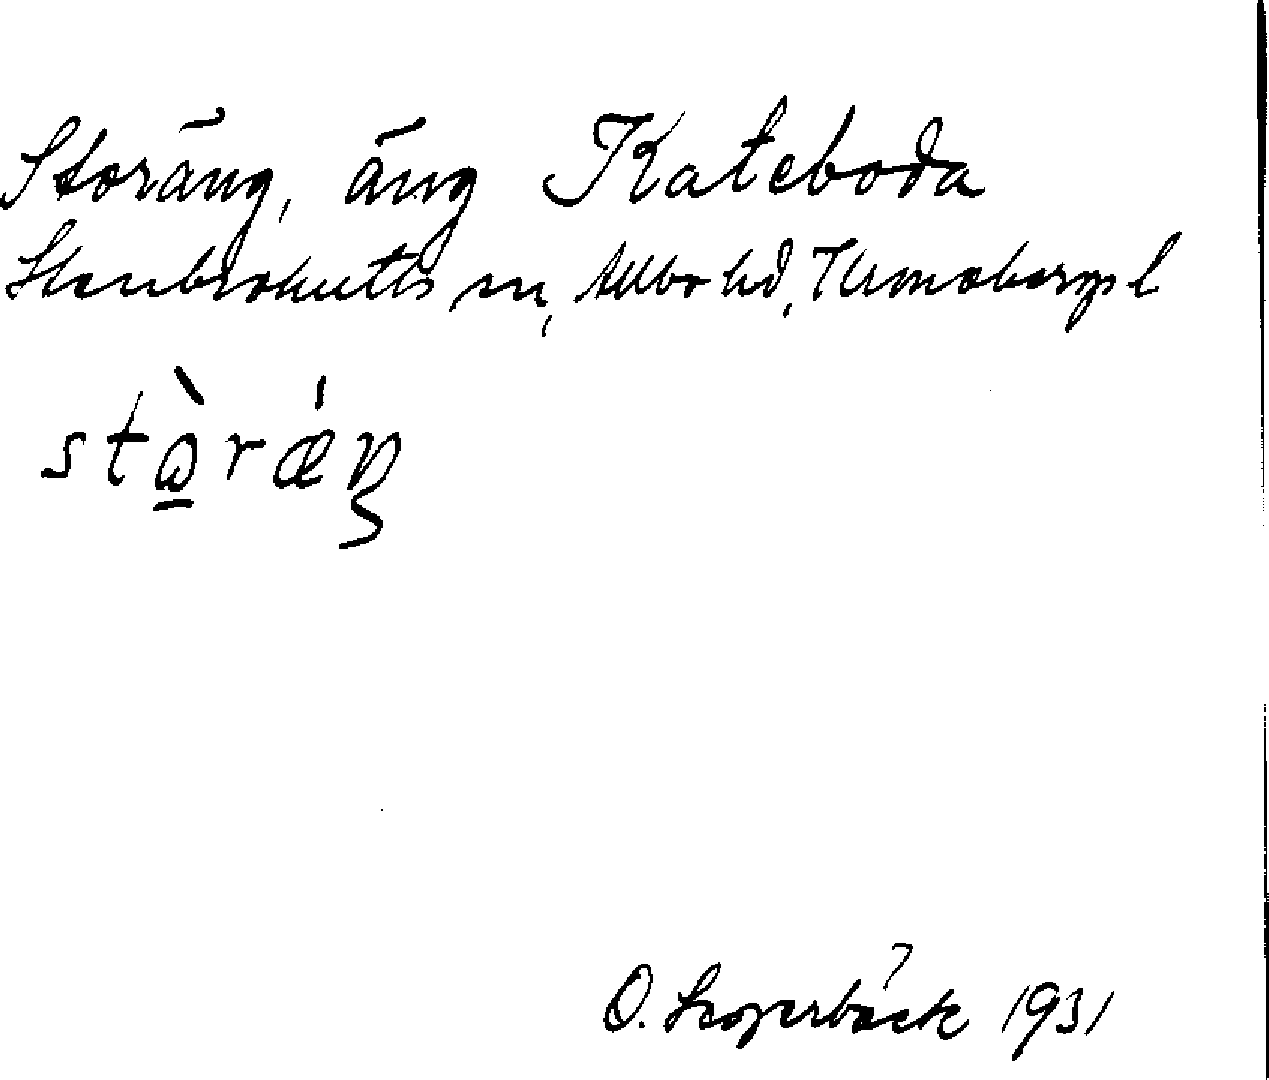 Storäng, äng Kateboda
Stenbrohults sn, Allbo hd, Kronobergs l
stòræŋ
O. Lagerbäck 1931